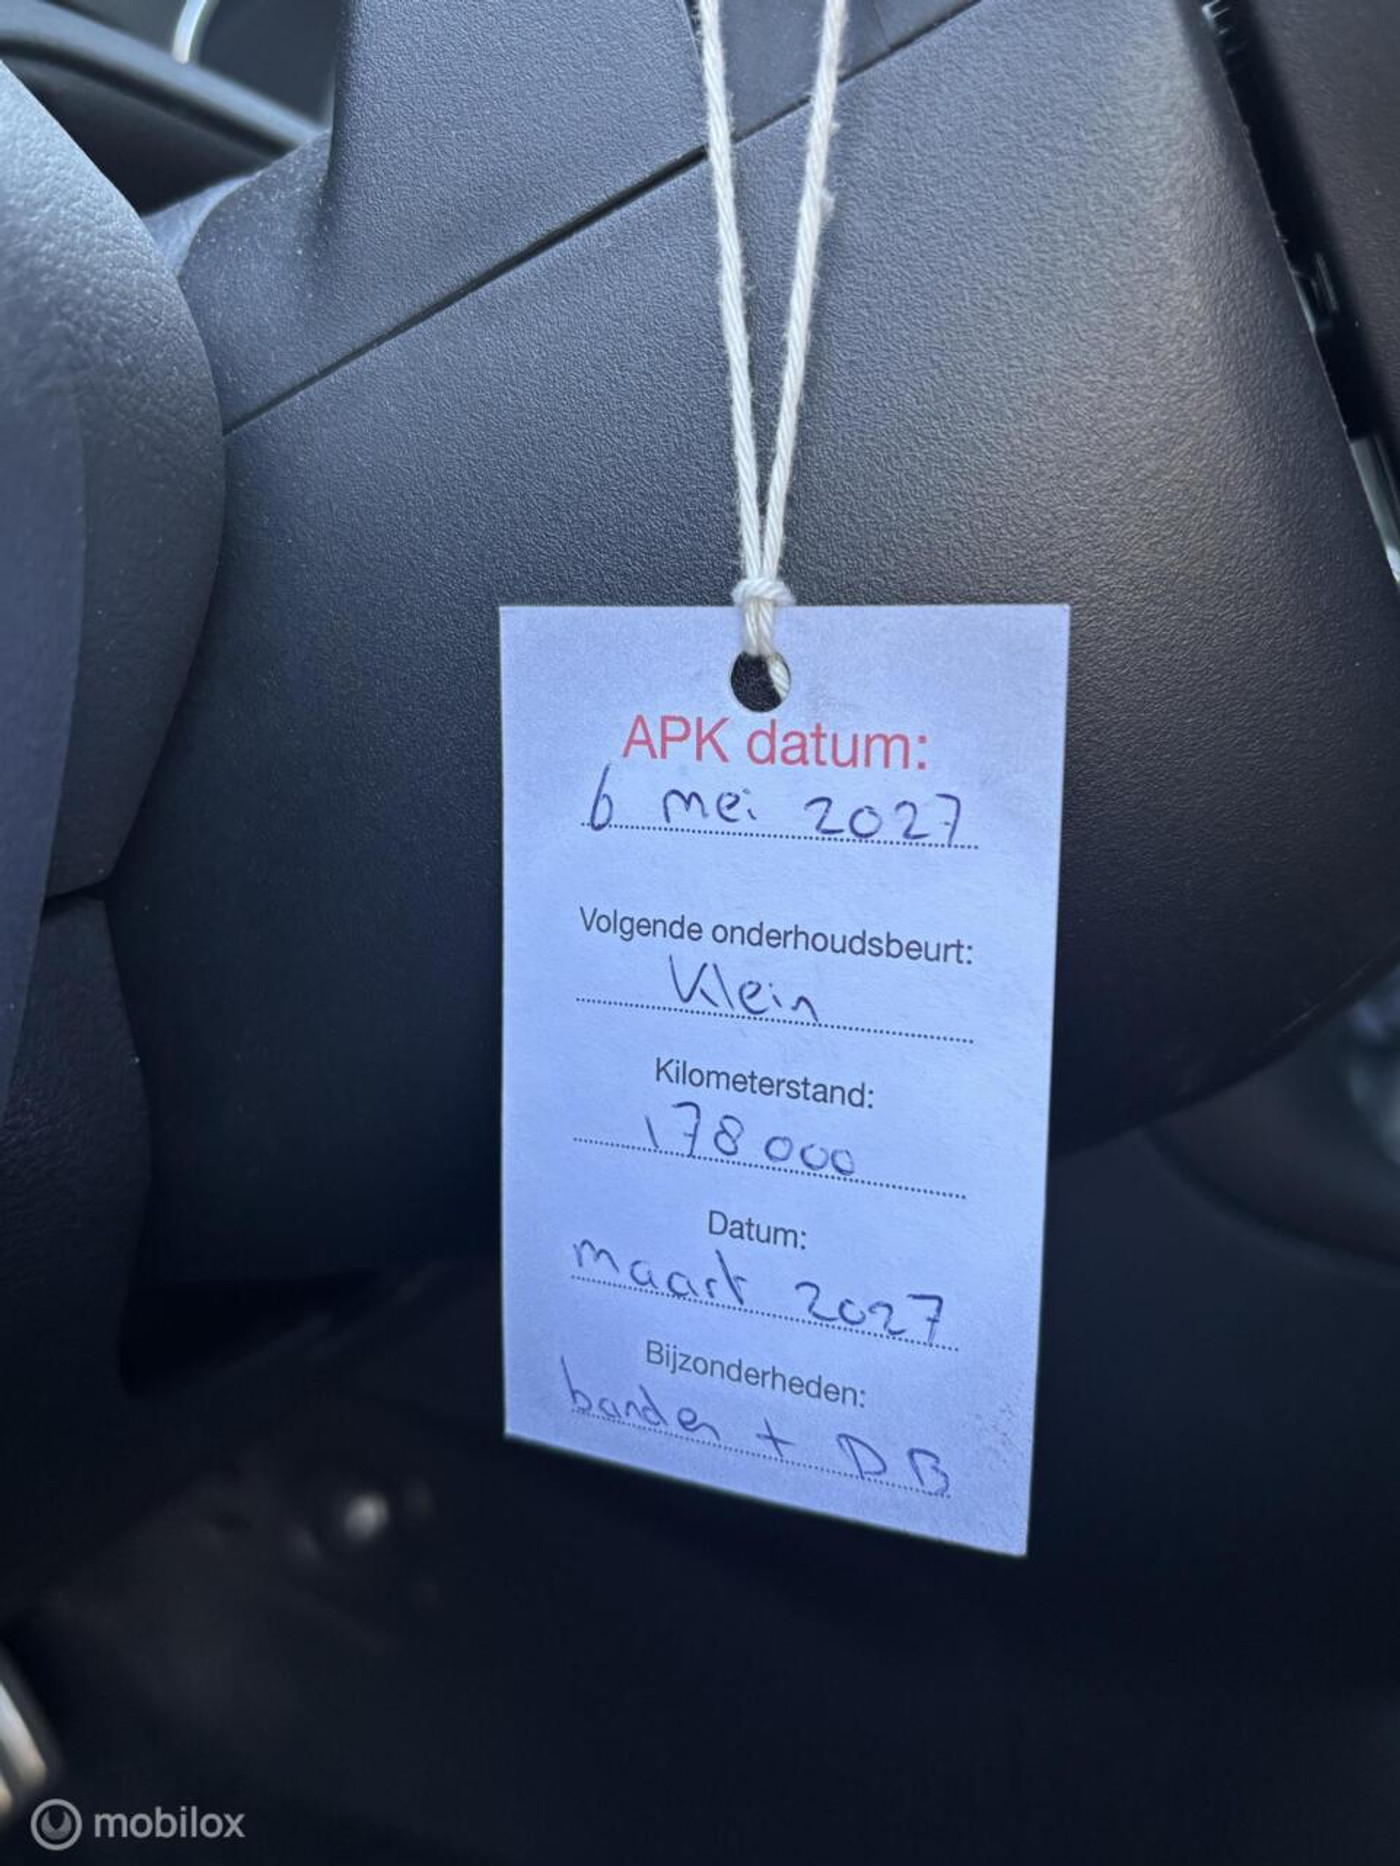 APK datum:
6 mei 2027
Volgende onderhoudsbeurt:
Klein
Kilometerstand:
178 000
Datum:
maart 2027
Bijzonderheden:
banden + DB
mobilox